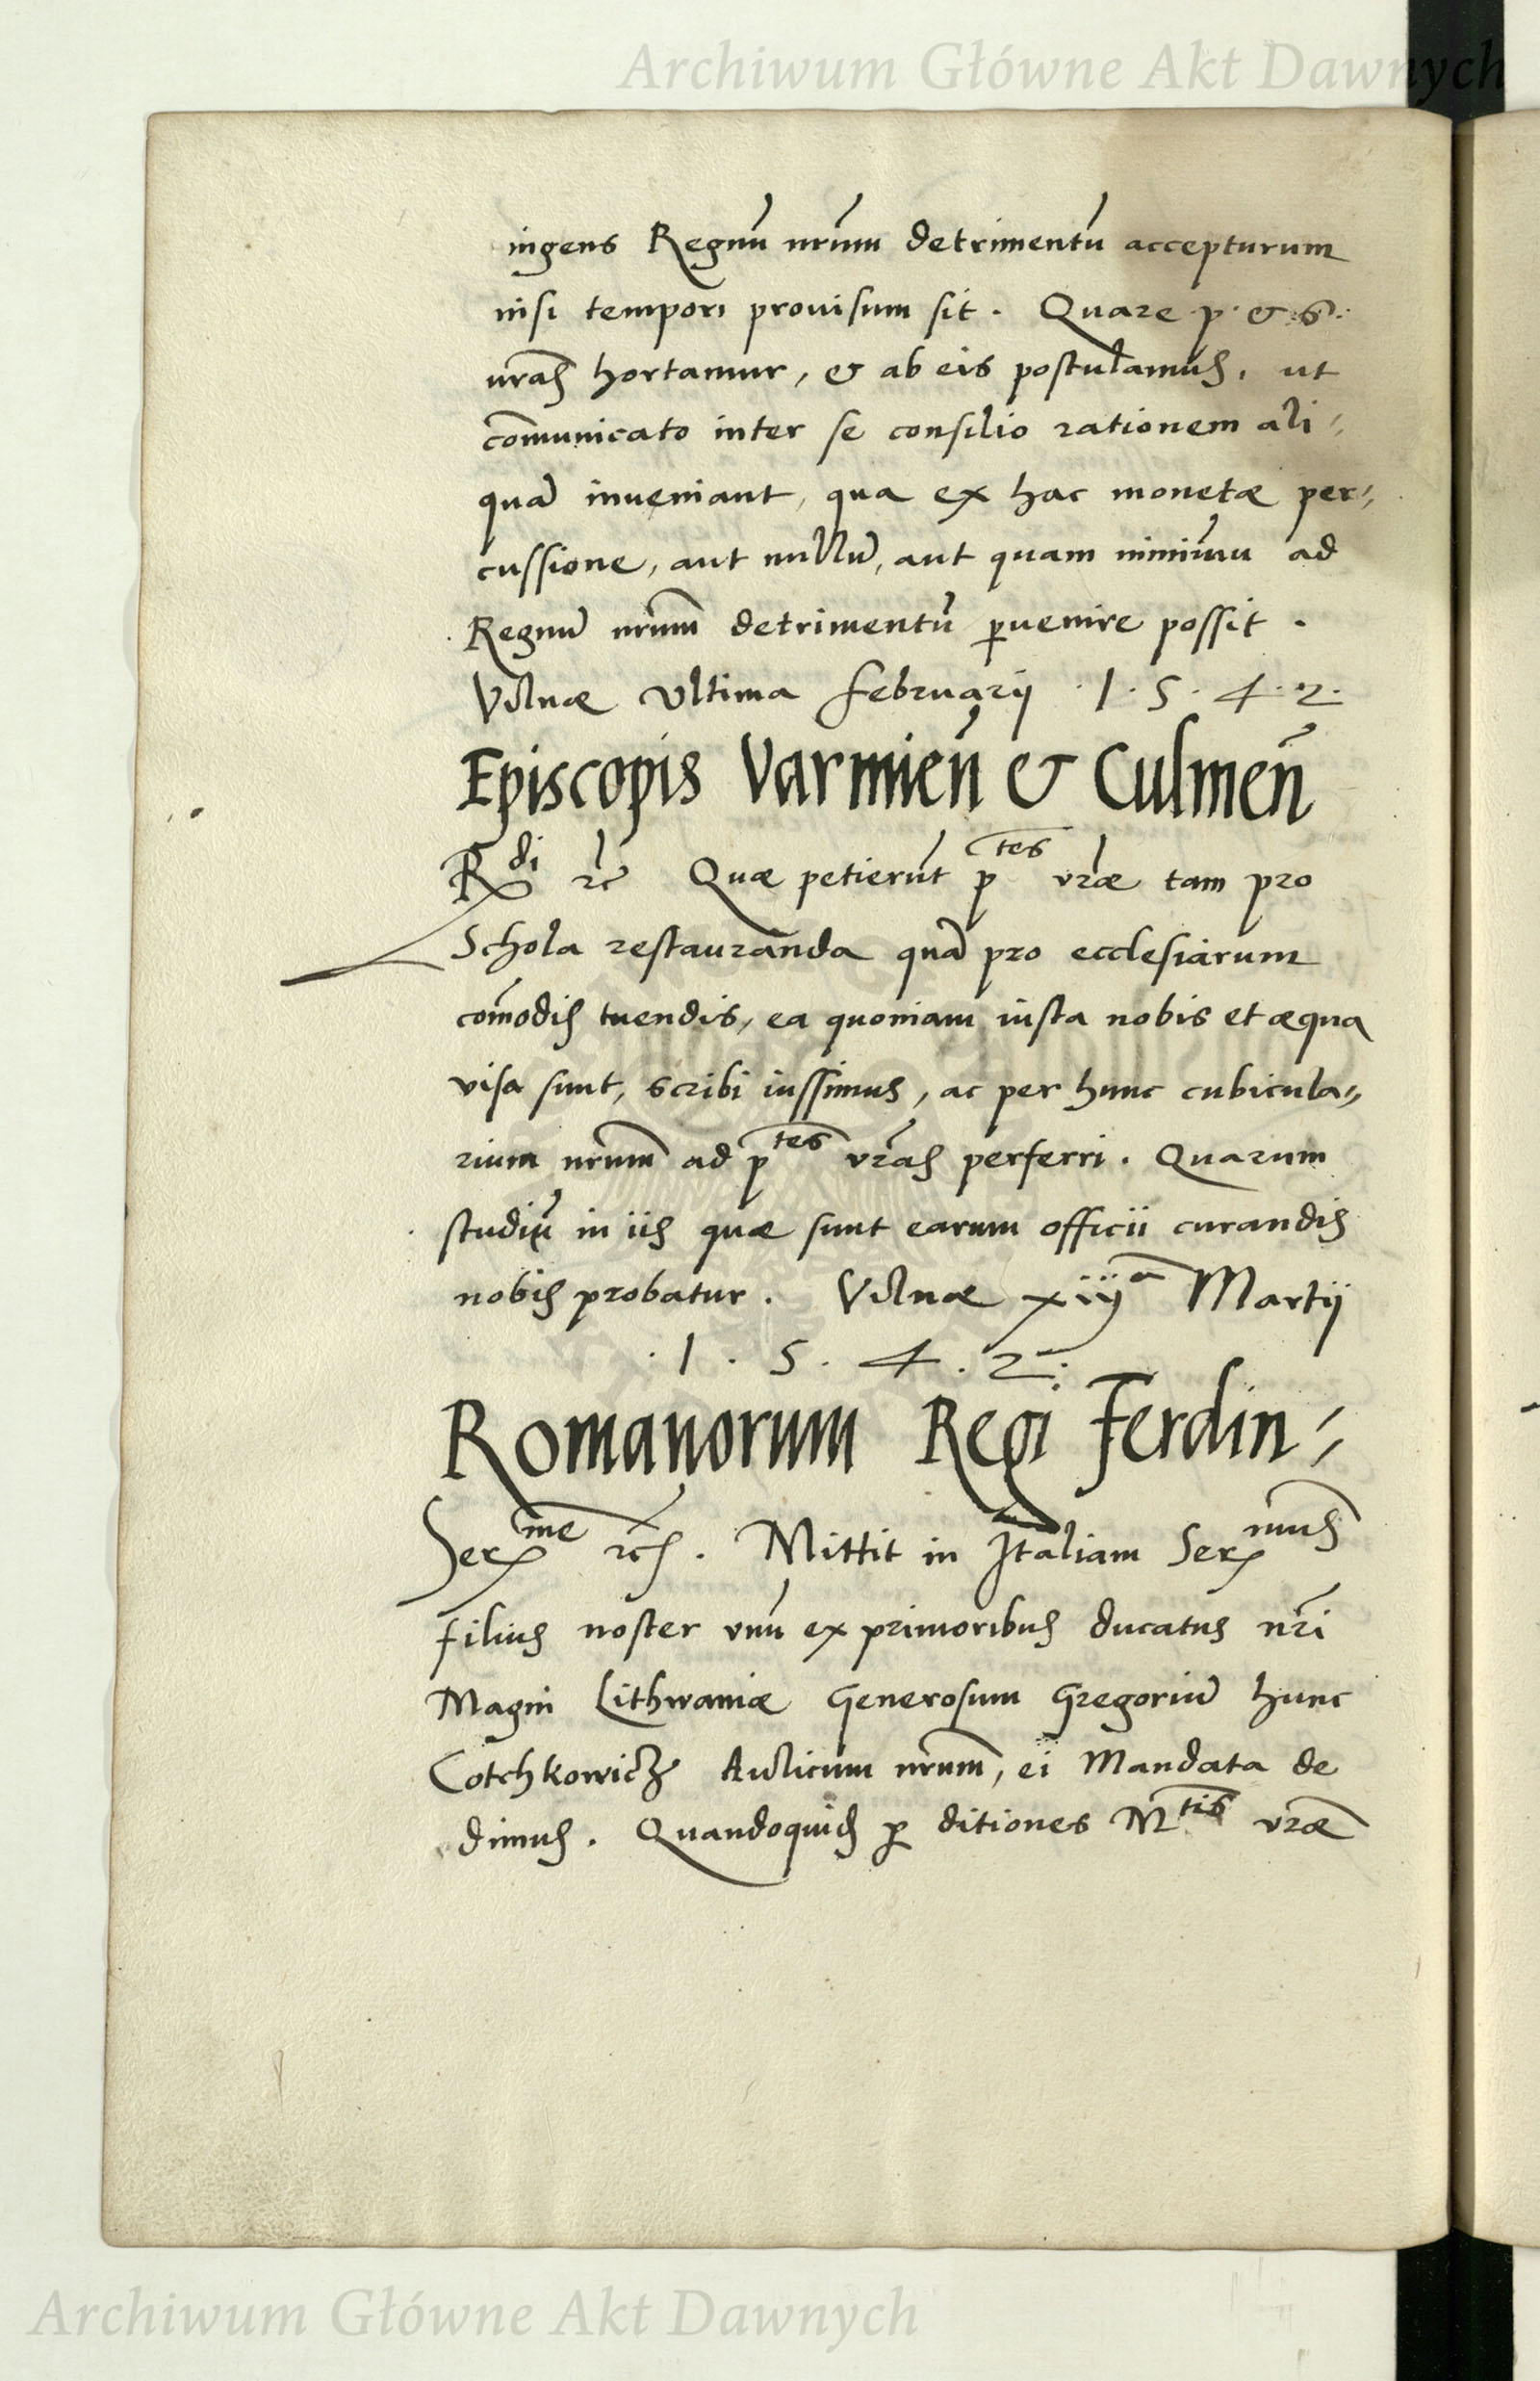 Archiwum Główne Akt Dawnych
ingens Regnũ nr̃um detrimentũ accepturum
nisi tempori prouisum sit. Quare p. & s.
vras hortamur, & ab eis postulamus, ut
com̃unicato inter se consilio rationem ali-
quã inueniant, qua ex hac monetæ per-
cussione, aut nullũ, aut quam minimũ ad
Regnũ nr̃um detrimentũ ꝑuenire possit.
Vilnæ Vltima februarij .1.5.4.2.
Episcopis Varmieñ & Culmeñ
R^di ꝛc̃ Quæ petierũt p^tes vr̃æ tam pro
Schola restauranda quã pro ecclesiarum
com̃odis tuendis, ea quoniam iusta nobis et æqua
visa sunt, scribi iussimus, ac per hunc cubicula-
rium nr̃um ad p^tes vr̃as perferri. Quarum
studiũ in iis quæ sunt earum officii curandis
nobis probatur. Vilnæ xiij^a Martij
.1.5.4.2.
Romanorum Regi Ferdin-
Ser^me ꝛc. Mittit in Italiam Ser^mus
filius noster vnũ ex primoribus ducatus nr̃i
Magni Lithwaniæ Generosum Gregoriũ hunc
Cotchkowicz Aulicum nr̃um, ei Mandata de
dimus. Quandoquid ꝑ ditiones M^tis vr̃æ
Archiwum Główne Akt Dawnych